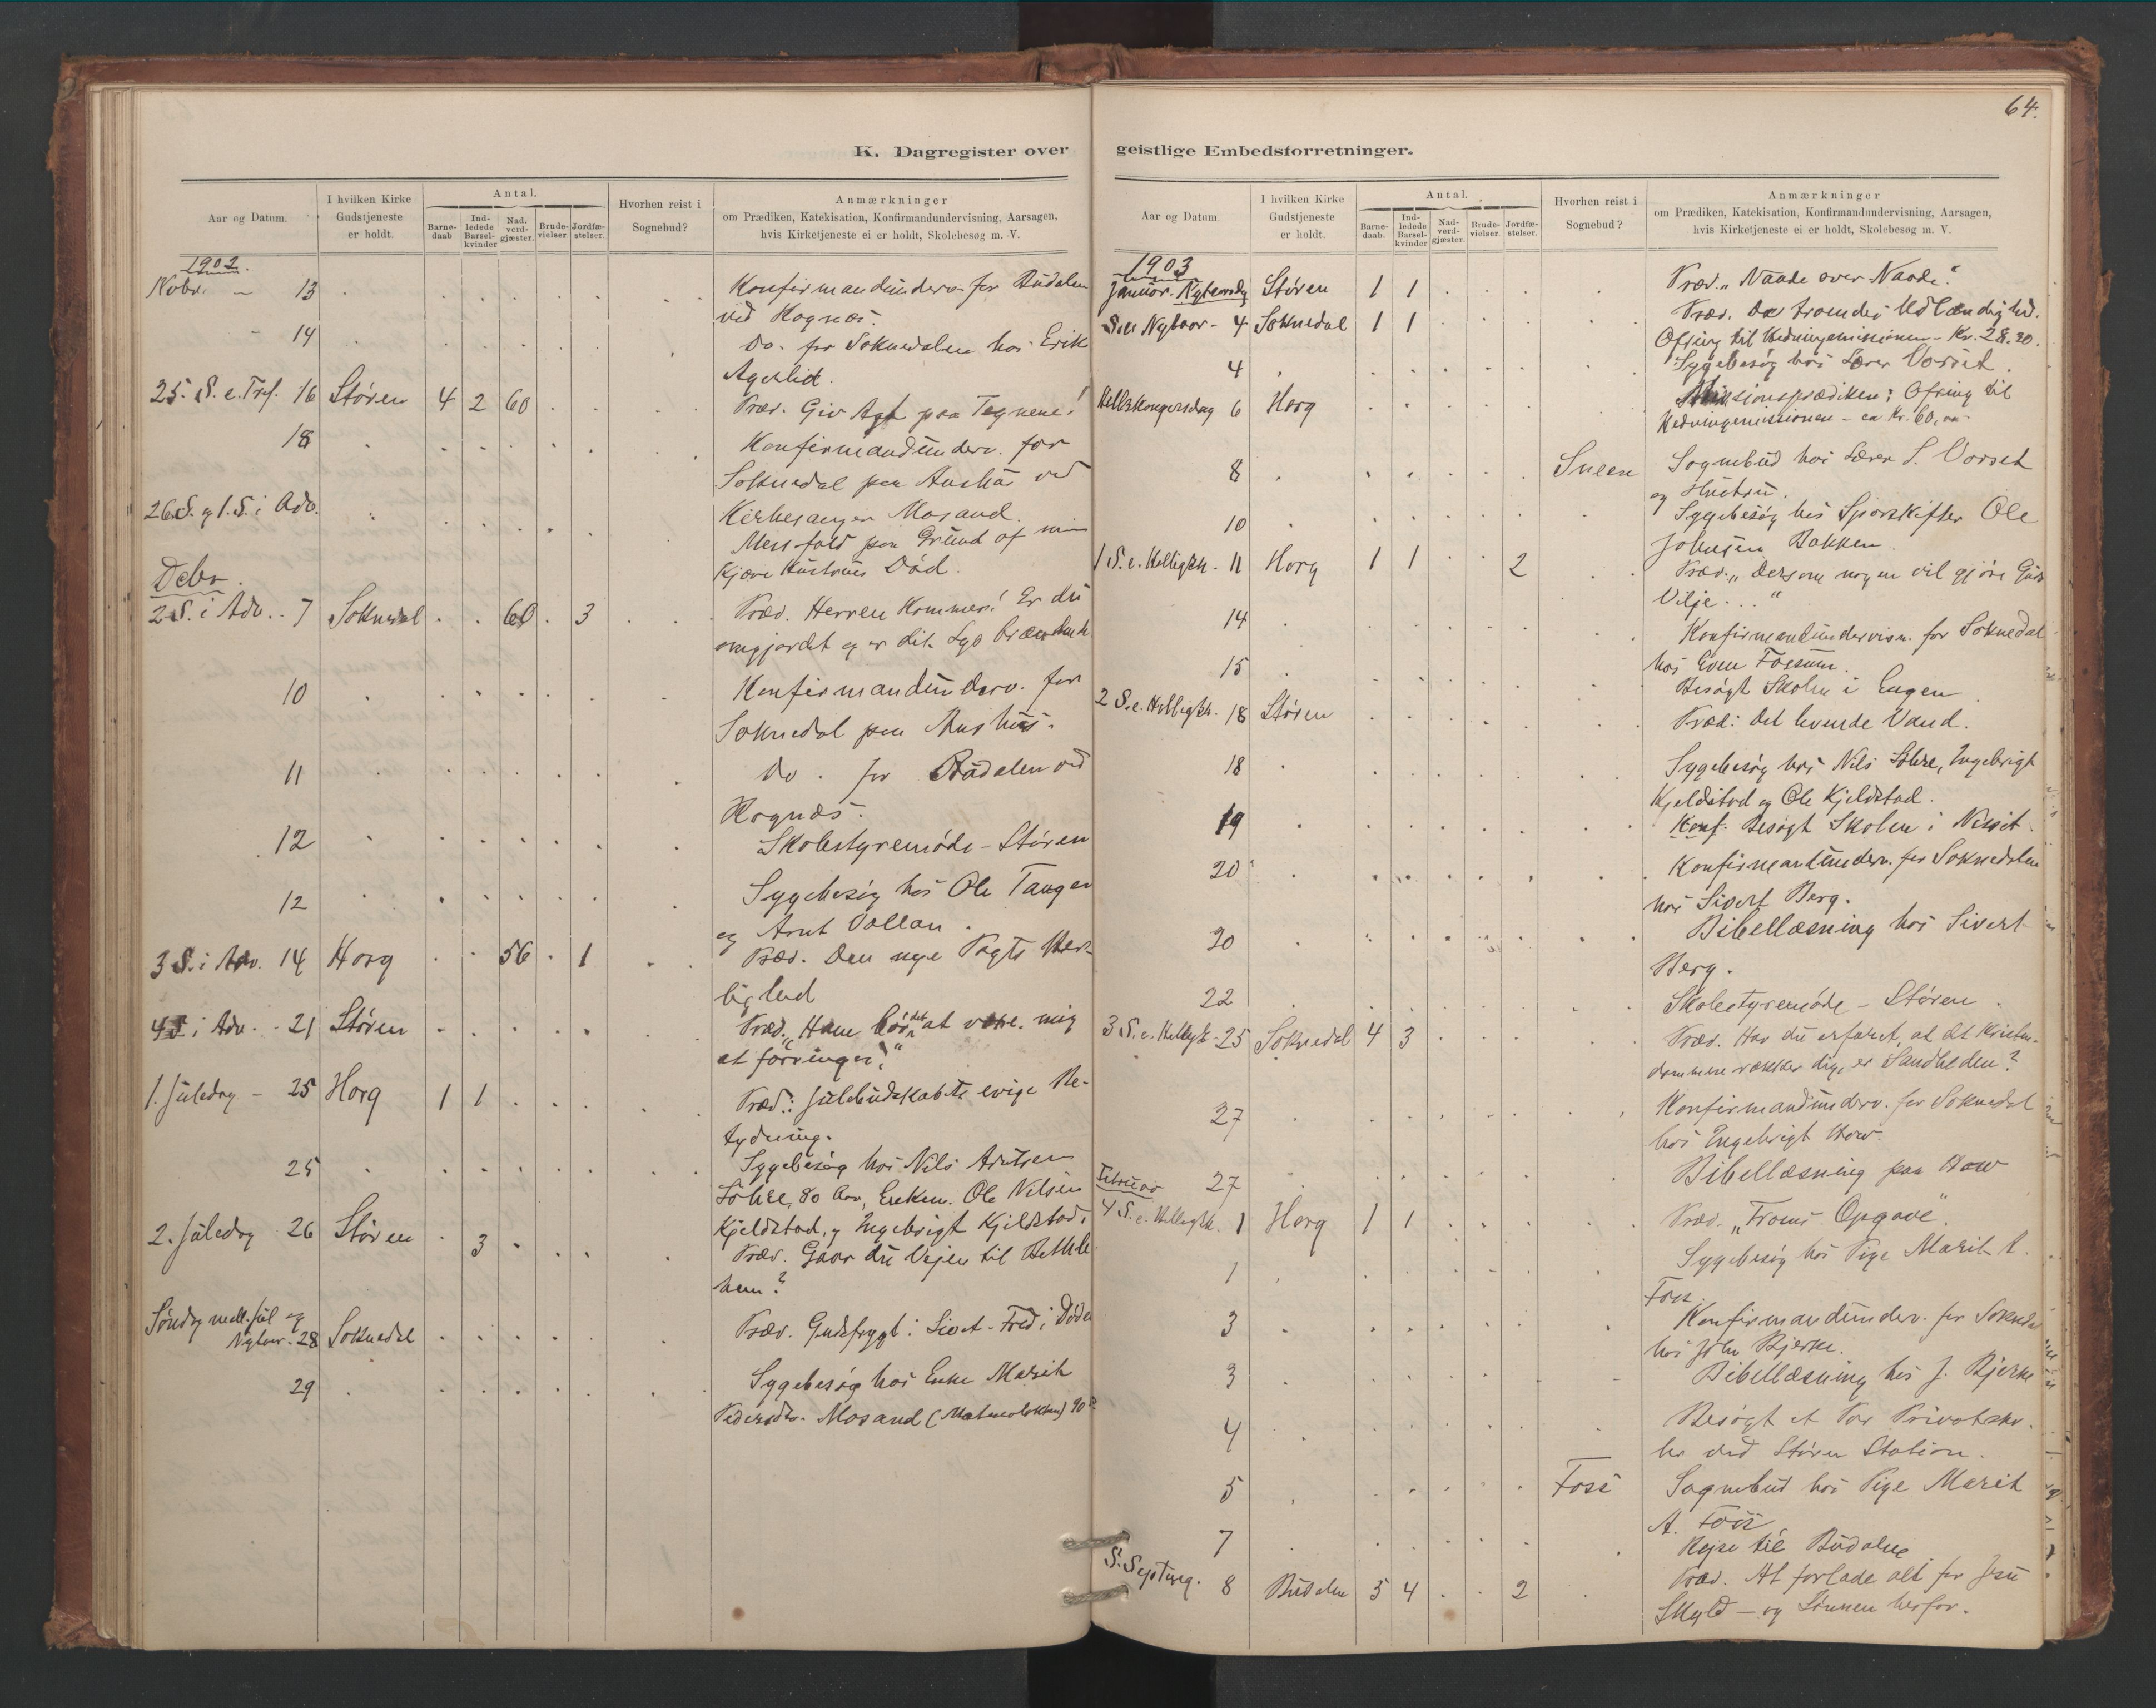 64.
K. Dagregister over
Aar og Datum.
I hvilken Kirke Gudstjeneste er holdt.
Antal.
Barne-daab
Ind-ledede Barsel-kvinder
Nad. verd-gjæster.
Brude-vielser
Jordfæ-stelser.
Hvorhen reist i Sognebud?
Anmærkninger
om Prædiken, Katekisation, Konfirmandundervisning, Aarsagen,
hvis Kirketjeneste ei er holdt, Skolebesøg m. V.
1902.
Nobr. - 13 Konfirmandunderv. for Budalen
ved Hognæs.
- 14 Do. for Soknedalen hos Erik
Agerlid.
25. S. e. Tref. 16 Støren 4 2 60 Præd. Giv Agt paa Tegnene!
18 Konfirmandunderv. for
Soknedal paa Aushus ved
Kirkesanger Mosand.
26. S. og 1. S. i Adv. Messefald paa Grund af min
Kjære Hustrues Død.
Debr.
2 S. i Adv. . 7 Soknedal 60 3 Præd. Herren Kommer! Er du
omgjordet og er dit Lys brændende
10 Konfirmandunderv. for
Soknedal paa Aushus.
11 Do. for Budalen ved
Hognæs.
12 Skolestyremøde - Støren
12 Sygebesøg hos Ole Tangen
og Arnt Vollan.
3 S. i Adv. 14 Horg 56 1 Præd. Den nye Pagts Her-
lighed
4 S. i Adv. - 21 Støren Præd. "Ham bør det at voxe, mig
at forringes."
1. Juledag - 25 Horg 1 1 Præd.: Julebudskabets evige Be-
tydning.
25 Sygebesøg hos Nils Arntsen
80 Aar, Enkem. Ole Nilsen
Kjeldstad, og Ingebrigt Kjeldstad.
2. Juledag 26 Støren 3 Præd. Gaar du Vejen til Bethle
hem?
Søndag mell. Jul og
Nytaar. 28 Soknedal Præd. Gudsfrygt i Livet - Fred i Døden
29 Sygebesøg hos Enke Marit
Pedersdtr. Mosand 90
geistlige Embedsforretninger.
Aar og Datum.
I hvilken Kirke Gudstjeneste er holdt.
Antal.
Barne-daab.
Ind-ledede Barsel-kvinder
Nad-verd-gjæster.
Brude-vielser.
Jordfæ-stelser.
Hvorhen reist i Sognebud?
Anmærkninger
om Prædiken, Katekisation, Konfirmandundervisning, Aarsagen,
hvis Kirketjeneste ei er holdt, Skolebesøg m. V.
1903
Januar. Nytaarsdag Støren 1 1 Præd. "Naade over Naade."
S. e. Nytaar - 4 Soknedal 1 1 Præd. De troendes Udlændighed.
Ofring til Hedningemissionen - Kr. 28.20.
4 Sygebesøg hos Lærer Vorset.
Hell. 3 Kongersdag 6 Horg Missionsprædiken; Ofring til
Hedningemissionen - ca Kr. 60,00-
8 Sneen Sognebud hos Lærer S. Vorset
og Hustru.
10 Sygebesøg hos Sporskifter Ole
Johnsen Bakken.
1 S. e. Helligtr. - 11 Horg 1 1 2 Præd. "Dersom nogen vil gjøre Guds
Vilje..."
14 Konfirmandundervisn. for Soknedal
hos Even Fossum.
15 Besøgt Skolen i Engen
2 S. e. Helligtr. 18 Støren Præd: Det levende Vand.
18 Sygebesøg hos Nils Ingebrigt
Kjeldstad og Ole Kjeldstad.
19 Konf. Besøgt Skolen i
20 Konfirmandunderv. for Soknedalen
hos Sivert Berg.
20 Bibellæsning hos Sivert
Berg.
22 Skolestyremøde - Støren.
3 S. e. Helligtr - 25 Soknedal 4 3 Præd. Har du erfaret, at det Kristen-
dommen rækker dig, er Sandheden?
27 Konfirmandunderv. for Soknedal
hos Ingebrigt How.
27 Bibellæsning paa How
Februar
4 S. e. Helligtr. 1 Horg 1 1 Præd. "Troens Opgave".
1 Sygebesøg hos Pige Marit A.
Foss.
3 Konfirmandunderv. for Soknedal
hos John Bjerke.
3 Bibellæsning hos J. Bjerke
4 Besøgt et Par Privatsko-
ler ved Støren Station.
5 Foss Sognebud hos Pige Marit
A. Foss
7 Rejse til Budalen
S. Septuag. 8 Budalen 5 4 2 Præd. At forlade alt for Jesu
Skyld - og Lønnen herfor.